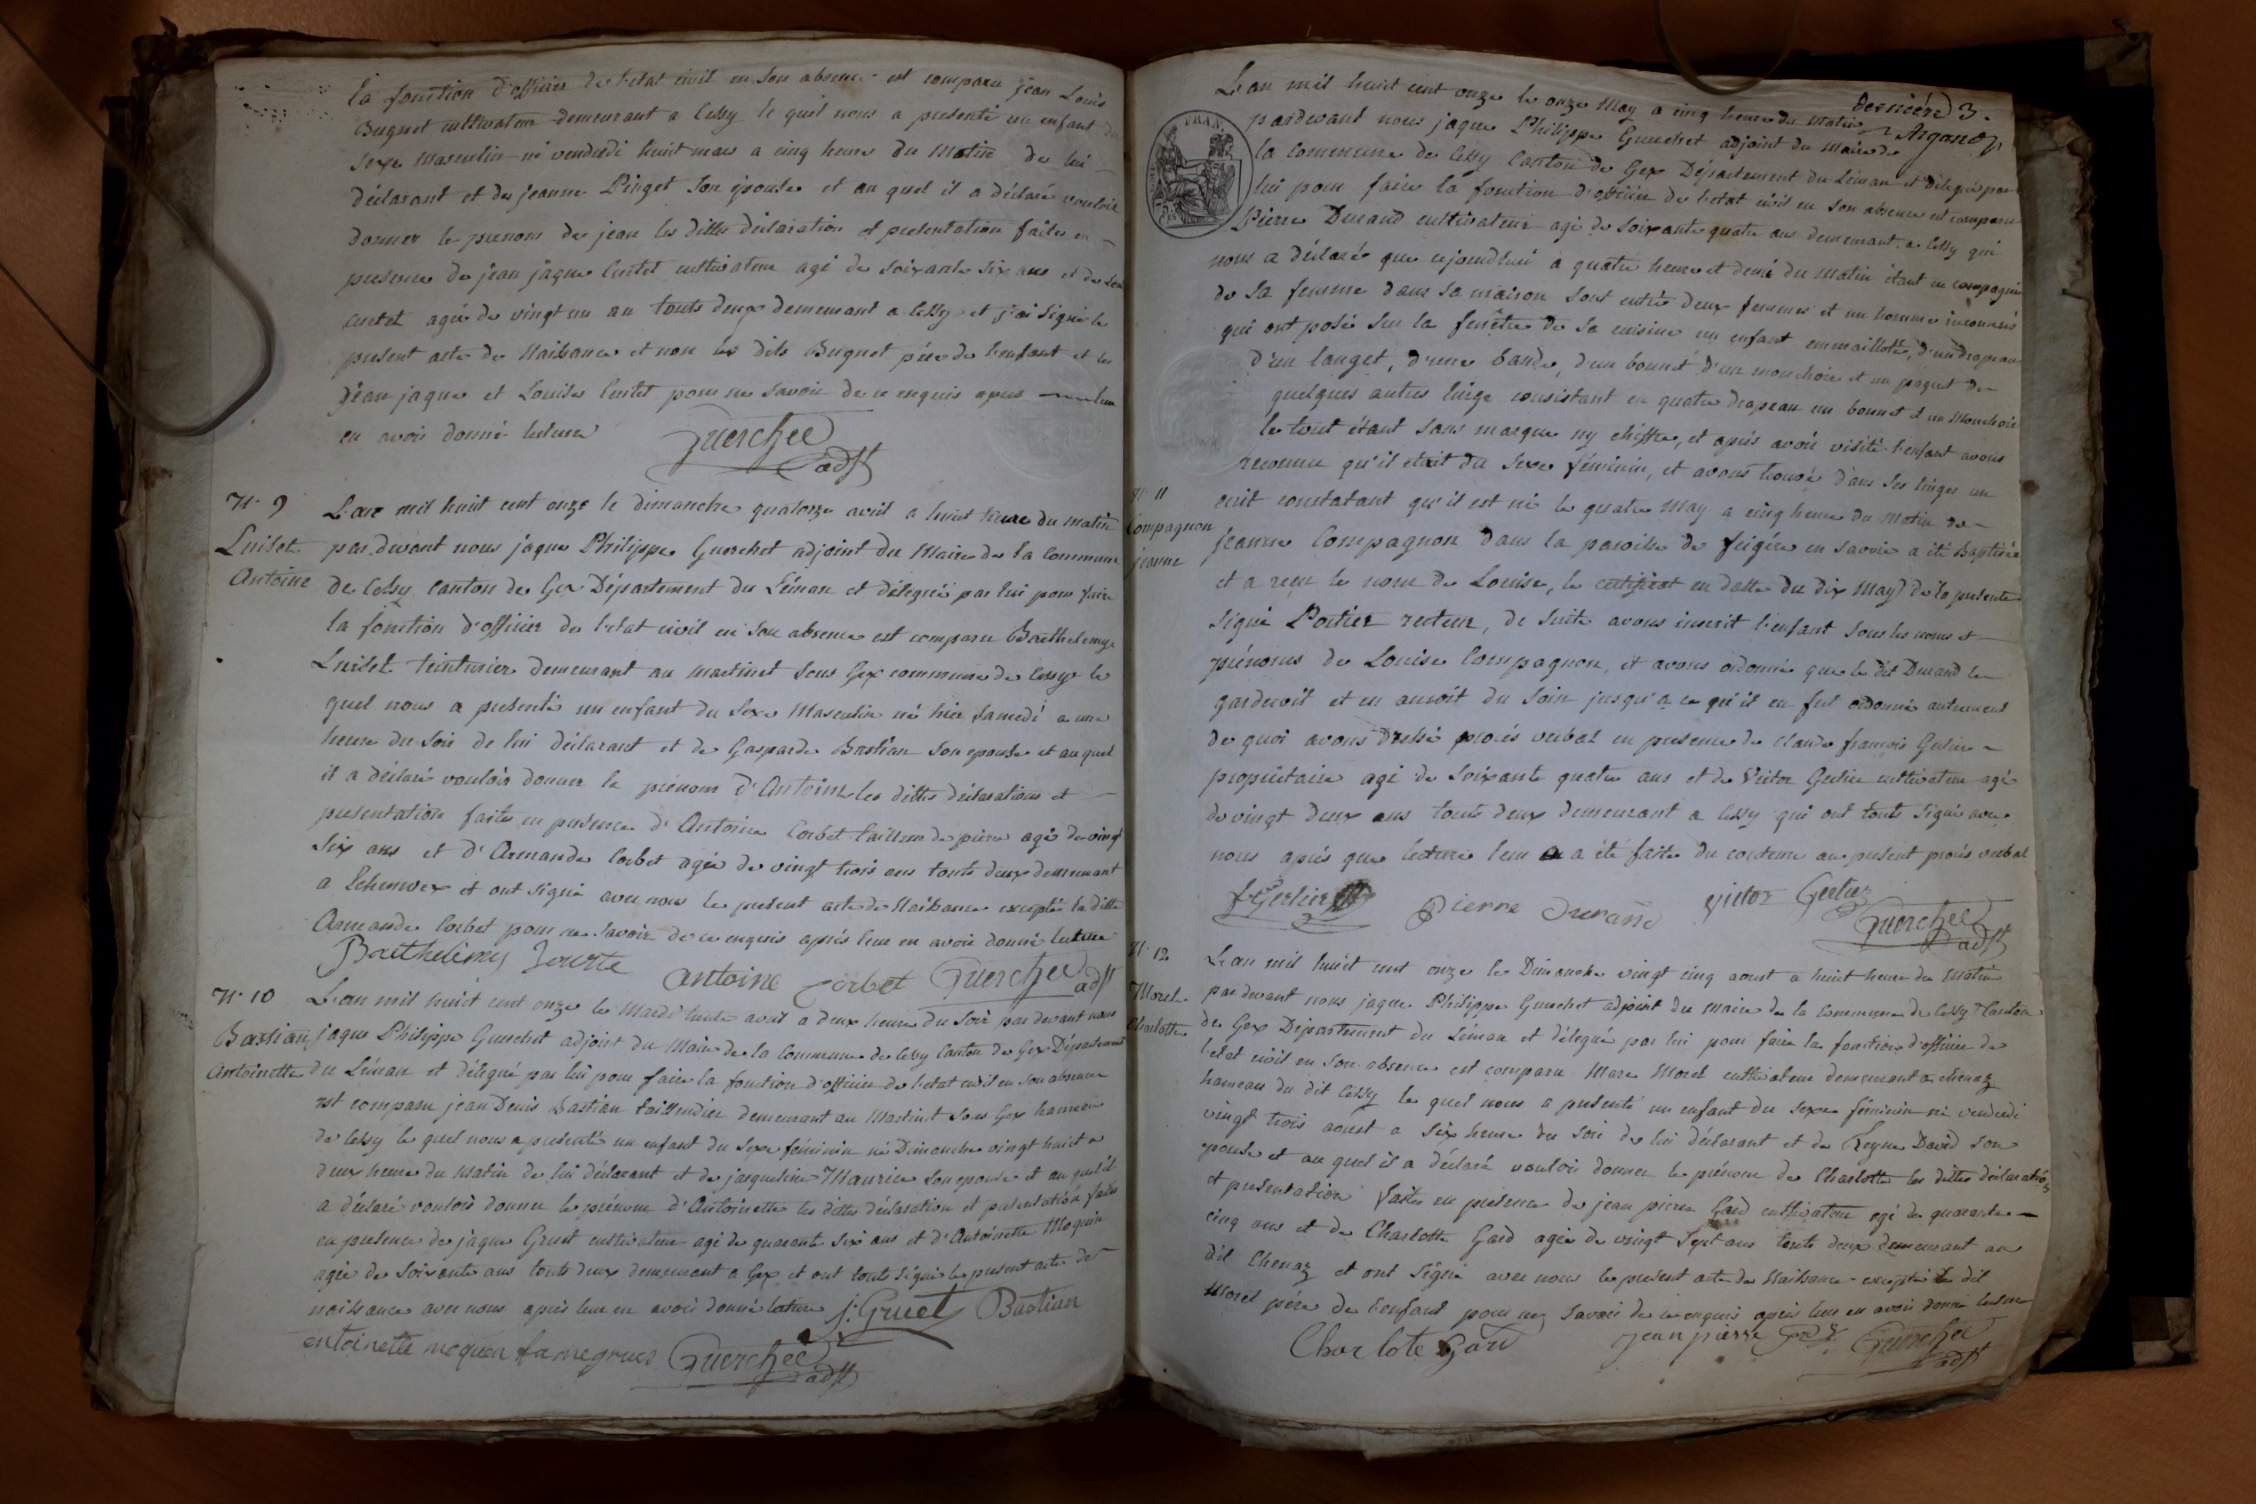 la fonction d'officier de l'etat civil en son absence est comparu jean Louis
Buguet cultivateur demeurant a Cessy le quel nous a presenté un enfant du
sexe masculin né vendredi huit mars a cinq heure du matin de lui
déclarant et de jeanne Pinget son épouse et au quel il a déclaré vouloir
donner le prenom de jean les dittes déclaration et presentation faites en
presence de jean jaque cultivateur agé de soixante six ans et de
agé de vingt un an touts deux demeurant a Cessy et j'ai signé le
present acte de Naissance et non les dits Buguet père de l'enfant et les
jean jaque et Louise pour ne savoir de ce enquis apres
en avoir donné lecture
Guerchet
adjt
N. 9
Luiset
Antoine
L'an mil huit cent onze le dimanche quatorze avril a huit heure du matin
par devant nous jaque Philippe Guerchet adjoint du Maire de la commune
de Cessy canton de Gex Département du Léman et délégué par lui pour faire
la fonction d'officier de l'etat civil en son absence est comparu Barthelemy
Luiset teinturier demeurant au martinet sous Gex commune de Cessy le
quel nous a presenté un enfant du sexe Masculin né hier samedi a une
heure du soir de lui déclarant et de Gasparde Bastian son epouse et au quel
il a déclaré vouloir donner le prénom d'Antoine les dittes déclarations et
presentation faites en presence d'Antoine Corbet tailleur de pierre agé de vingt
six ans et d'Armande Corbet agée de vingt trois ans touts deux demeurant
a Echenevex et ont signé avec nous le present acte de Naissance excepté la ditte
Armande Corbet pour ne savoir de ce enquis après leur en avoir donné lecture
Barthelemy
antoine Corbet Guerchet adjt
N. 10
Bastian
Antoinette
L'an mil huit cent onze le Mardi trente avril a deux heure du soir par devant nous
jaque Philippe Guerchet adjoint du Maire de la Commune de Cessy Canton de Gex Département
du Léman et délégué par lui pour faire la fonction d'officier de l'etat civil en son absence
est comparu jean Denis Bastian taillandier demeurant au Martinet sous Gex hameau
de Cessy le quel nous a presenté un enfant du sexe féminin né Dimanche vingt huit a
deux heure du matin de lui déclarant et de jacqueline Maurice son epouse et au quel il
a déclaré vouloir donner le prénom d'Antoinette les dittes déclaration et presentation faites
en presence de jaque Gruet cultivateur agé de quarante six ans et d'Antoinette Moquin
agée de soixante ans touts deux demeurant a Gex et ont touts signé le present acte de
naissance avec nous après leur en avoir donné lecture J. Gruet Bastian
antoinette moquen
Guerchet
adjt
dernière 3.
Argand
L'an mil huit cent onze le onze May a cinq heure du matin
pardevant nous jaque Philippe Guerchet adjoint du maire de
la Commune de Cessy Canton de Gex Département du Léman et délégué par
lui pour faire la fonction d'officier de l'etat civil en son absence est comparu
Pierre Durand cultivateur agé de soixante quatre ans demeurant a Cessy qui
nous a déclaré que cejourdhui a quatre heure et demi du matin étant en compagnie
de sa femme dans sa maison sont entré deux femmes et un homme inconnus
qui ont posé sur la fenêtre de sa cuisine un enfant emmailloté, d'un drapeau
d'un langet, d'une bande, d'un bonnet d'un mouchoir et un paquet de
quelques autres linge consistant en quatre drapeau un bonnet et un Mouchoir
le tout étant sans marque ny chiffre, et après avoir visité l'enfant avons
reconnu qu'il etoit du sexe féminin, et avons trouvé dans ses linges un
écrit constatant qu'il est né le quatre May a cinq heure du matin de
N. 11
Compagnon
jeanne
jeanne Compagnon dans la paroisse de feigère en savoie a été Baptisée
et a reçu le nom de Louise, le certificat en datte du dix May de la presente
signé Portier recteur, de suite avons inscrit l'enfant sous les noms et
prénoms de Louise Compagnon, et avons ordonné que le dit Durand le
garderoit et en auroit du soin jusqu'a ce qu'il en fut ordonné autrement
de quoi avons dressé procés verbal en presence de claude françois Gerlier
propriétaire agé de soixante quatre ans et de Victor Gerlier cultivateur agé
de vingt deux ans touts deux demeurant a Cessy qui ont touts signé avec
nous après que lecture leur a été faite du contenu au present procés verbal
Gerlier pierre durand victor Gerlier
Guerchet
adjt
N. 12
Morel
Charlotte
L'an mil huit cent onze le Dimanche vingt cinq aoust a huit heure du Matin
par devant nous jaque Philippe Guerchet adjoint du maire de la commune de Cessy Canton
de Gex Département du Léman et délégué par lui pour faire la fonction d'officier de
l'etat civil en son absence est comparu Marc Morel cultivateur demeurant a chenaz
hameau du dit Cessy le quel nous a presenté un enfant du sexe féminin né vendredi
vingt trois aoust a six heure du soir de lui déclarant et de Reyne David son
epouse et au quel il a déclaré vouloir donner le prénom de Charlotte les dittes déclaration
et presentation faites en presence de jean pierre Gard cultivateur agé de quarante
cinq ans et de Charlotte Gard agée de vingt sept ans touts deux demeurant au
dit Chenaz et ont signé avec nous le present acte de Naissance excepté le dit
Morel père de l'enfant pour ne savoir de ce enquis après leur en avoir donné lecture
Charlote Gard jean pierre Guerchet
adjt